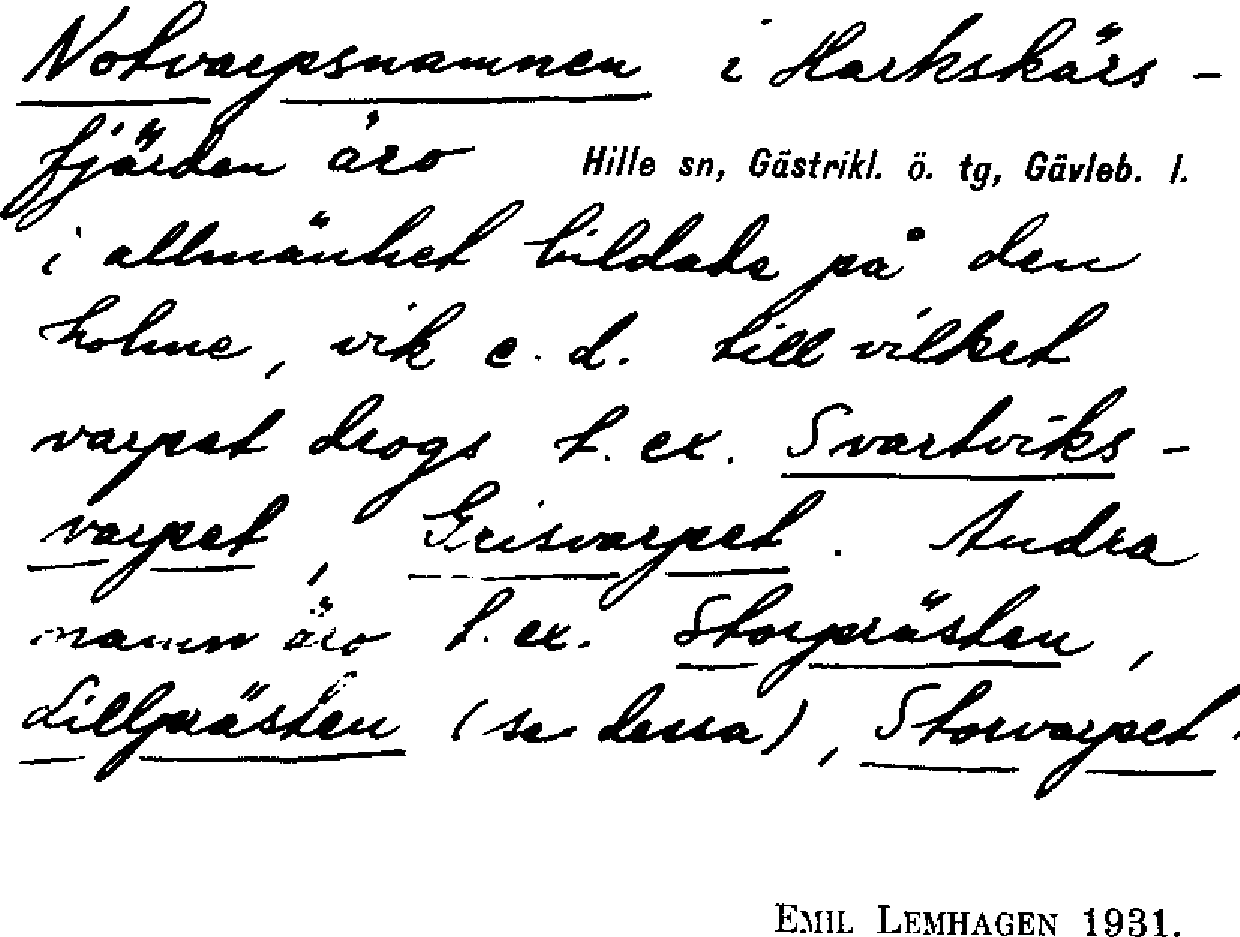 Notvarpsnamnen i Harkskärs-
fjärden äro Hille sn, Gästrikl. ö. tg, Gävleb. l.
i allmänhet bildade på den
holme, vik e. d. till vilket
varpet drogs t. ex. Svartviks-
varpet, Grisvarpet. Andra
namn äro t. ex. Storprästen,
Lillprästen (se dessa), Storvarpet.
EMIL LEMHAGEN 1931.